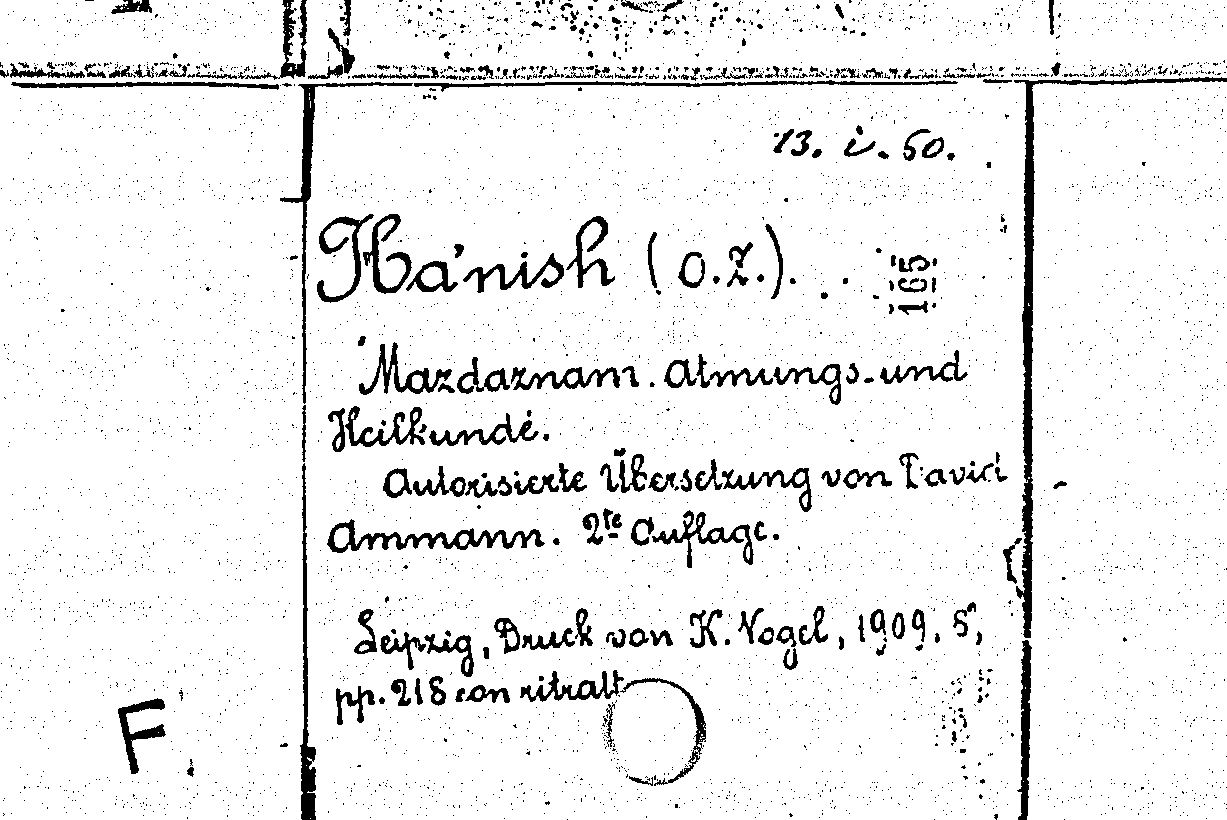 13. i. 50.
Ha'nish (O. Z.). . .
165
Mazdaznam. Atmungs- und
Heilkunde.
Autorisierte Übersetzung von David
Ammann. 2te Auflage.
Leipzig, Druck von K. Vogel, 1909. 8°,
pp. 218 con ritratt
F.